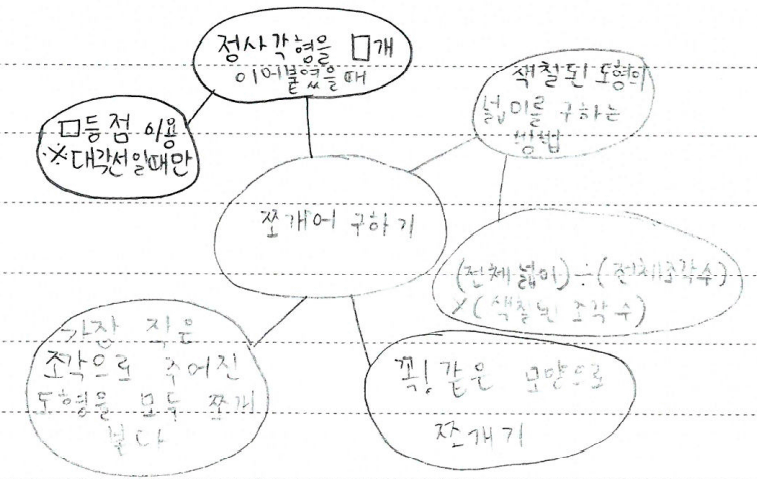 정사각형을 □개
이어붙였을 때
□등점 이용
※대각선일때만
색칠된 도형의
넓이를 구하는
방법
쪼개어 구하기
(전체 넓이) ÷ (전체조각수)
×(색칠된 조각 수)
가장 작은
조각으로 주어진
도형을 모두 쪼개
본다
꼭! 같은 모양으로
쪼개기